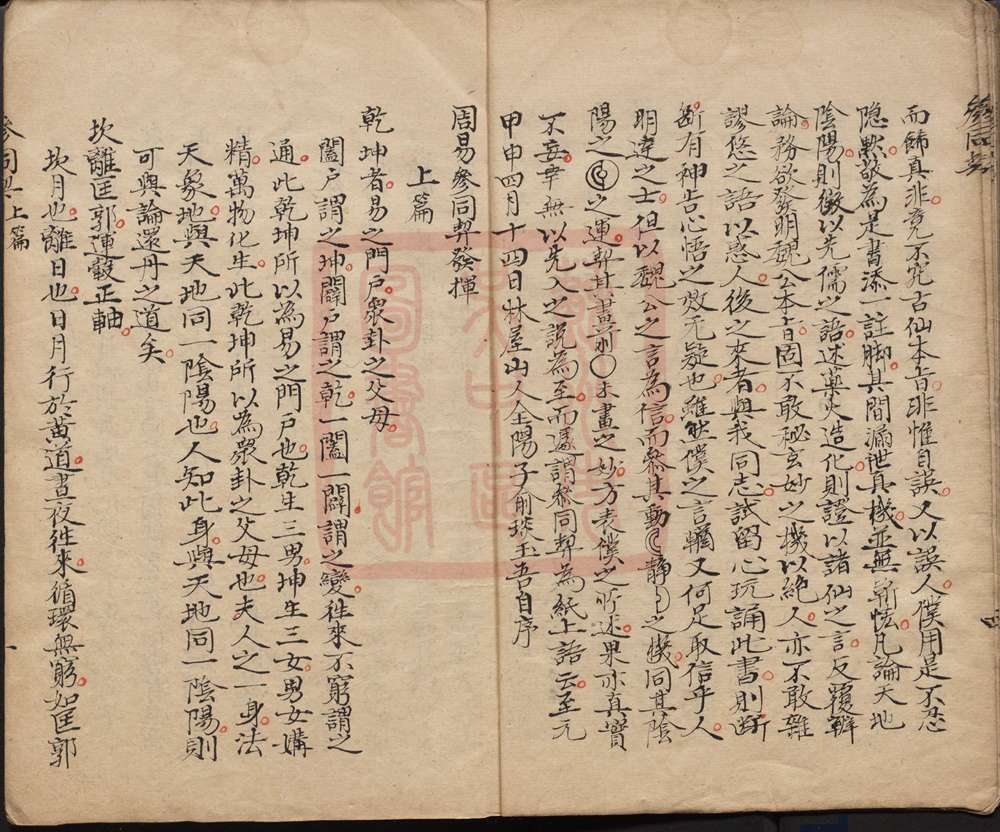 參同契
而飾真非竟不究古仙本旨非惟自誤又以誤人僕用是不忍
隐默敬為是書添一註脚其間漏泄真機並無靳恡凡論天地
陰陽則徵以先儒之語述藥火造化則證以諸仙之言反覆辨
論務欲發明魏公本旨固不敢秘玄妙之機以絶人亦不敢雜
謬悠之語以惑人後之來者與我同志試留心玩誦此書則斷
斷有神告心悟之效无疑也雖然僕之言輶又何足取信乎人
明達之士但以魏公之言為信而叅其動静之機同其陰
陽之之運契其畫前〇未畫之妙方表僕之所述果亦真實
不妄幸無以先入之說為主而遽謂叅同契為紙上語云至元
甲申四月十四日林屋山人全陽子俞琰玉吾自序
四
周易參同契發揮
上篇
乾坤者易之門戶衆卦之父母
闔户謂之坤闢戶謂之乾一闔一闢謂之變徃來不窮謂之
通此乾坤所以為易之門戶也乾生三男坤生三女男女媾
精萬物化生此乾坤所以為衆卦之父母也夫人之一身法
天象地與天地同一陰陽也人知此身與天地同一陰陽則
可與論還丹之道矣
坎離匡郭運轂正軸
坎月也離日也日月行於黃道晝夜徃來循環無窮如匡郭
參同契上篇
一